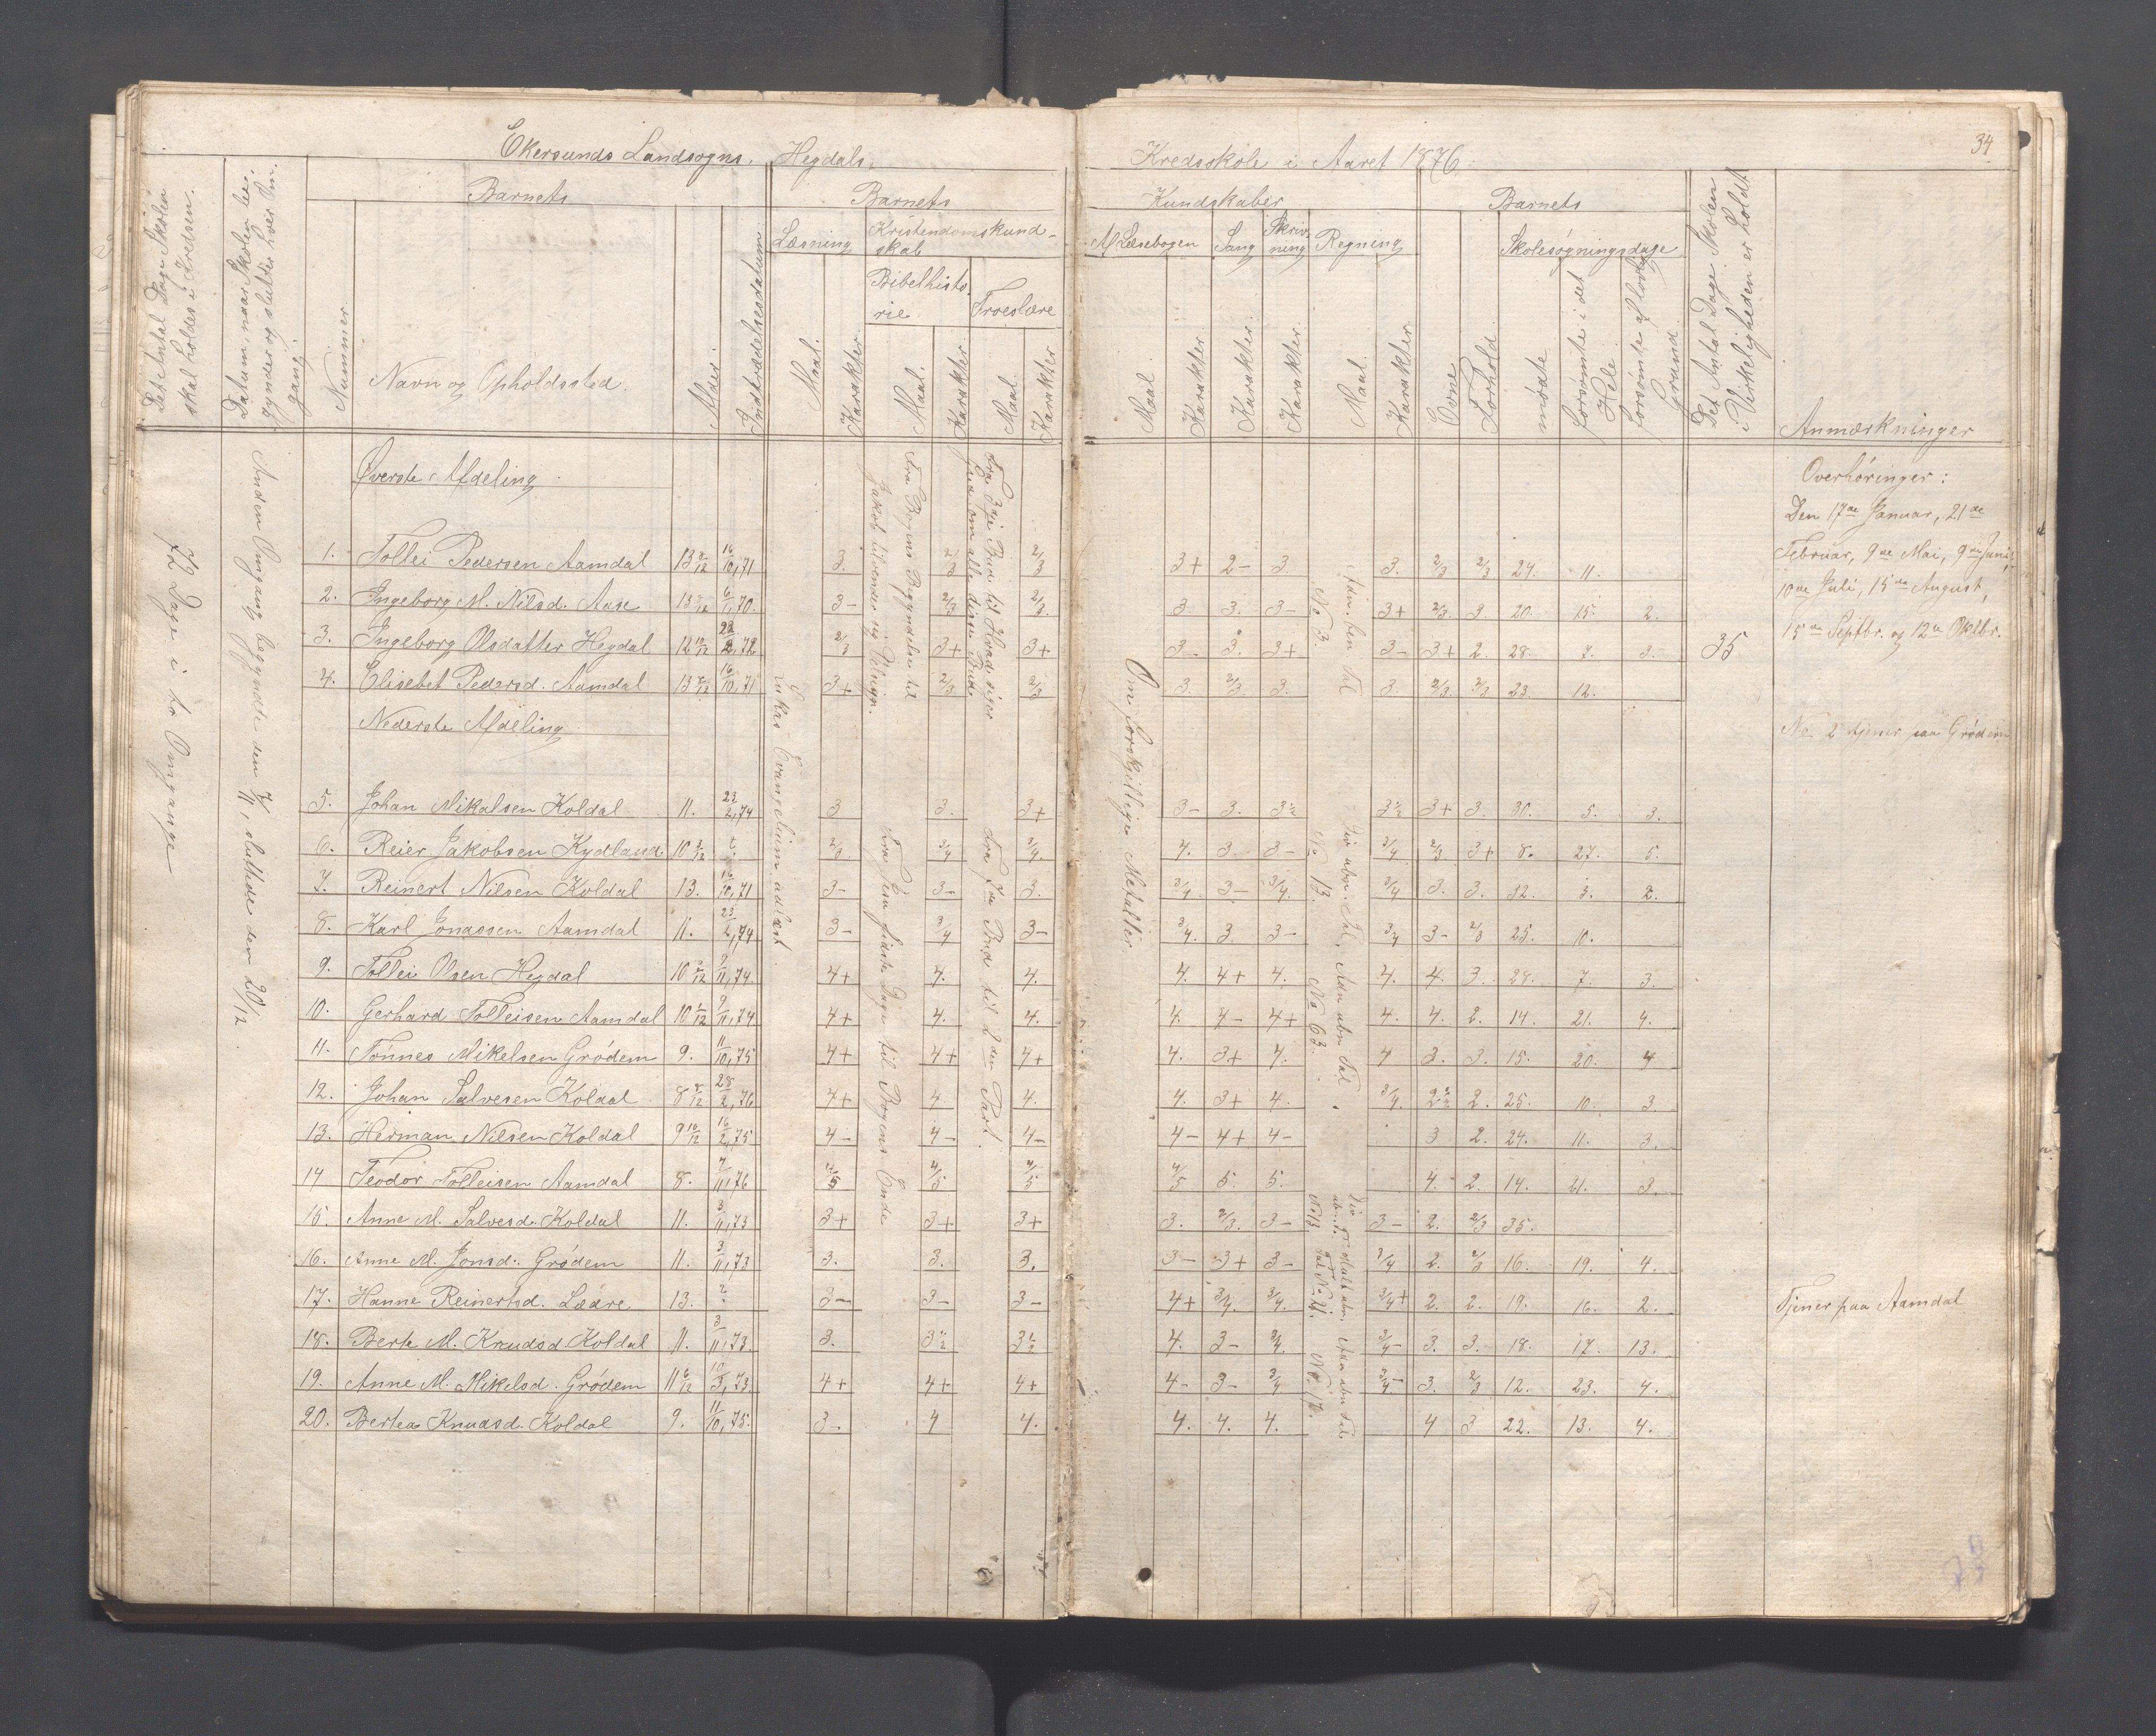 Ekersunds Landsogns, Hegdals. Kredsskole i Aaret 1876. 34
Det Antal Dage Skolen skal holdes i Kredsen.
Datum, naar Skolen begynder og slutter hver Omgang.
Barnets
Nummer
Navn og Opholdssted.
Alder.
Indtrædelsesdatum.
Barnets
Læsning
Maal.
Karakter.
Kristendomskundskab
Bibelhistorie.
Maal.
Karakter.
Troeslære
Maal.
Karakter.
Kundskaber
Af Læsebogen
Maal
Karakter.
Sang
Karakter.
Skrivning
Karakter.
Regning
Maal.
Karakter.
Barnets
Evne
Forhold.
Skolesøgningsdage
mødte
forsømte i det Hele.
forsømte af lovlig Grund.
Det Antal Dage Skolen i Virkeligheden er holdt
Anmærkninger
72 Dage i to Omgange
Anden Omgang begyndte den 7/11, sluttede den 20/12.
Øverste Afdeling
1. Tollei Pedersen Aamdal 13 8/12 16/10,71 3. 2/3 2/3 3+ 2- 3. 3. 2/3 2/3 24. 11.
2. Ingeborg M. Nilsd. Aase 6/1,70. 3- 2/3 2/3. 3. 3. 3- 3+ 2/3. 3. 20. 15. 2.
3. Ingeborg Olsdatter Hegdal 12 10/12 2/3 3+ 3+ 3- 3. 3+ 3- 3+ 2. 28. 7. 3. 35
4. Elisebet Pedersd. Aamdal 16/10,71 3+ 2/3 2/3 3. 2/3. 3. 3. 2/3. 2/3 23. 12.
Nederste Afdeling
5. Johan Mikalsen Koldal 11. 23/2,74 3 3. 3+ 3- 3. 3½ 3½ 3+ 3. 30. 5. 3.
6. Reier Jakobsen Kydland 4. 3. 3- 3/4 2/3 3+ 8. 27. 5.
7. Reinert Nilsen Koldal 13. 16/10,71 3- 3- 3. 3/4 3- 3/4. 3/4 3. 3. 32. 3. 2.
8. Karl Jonassen Aamdal 11. 23/2,74 3- 3/4 3- 3/4. 3. 3- 3/4 3- 2/3 25. 10.
9. Tollei Olsen Hegdal 9/11,74. 4+ 4. 4. 4. 4+ 4. 4. 4. 3. 28. 7. 3.
10. Gerhard Tolleisen Aamdal 9/11,74 4+ 4. 4. 4. 4- 4+ 4. 4. 2. 14. 21. 4.
11. Tønnes Mikelsen Grødem 9. 11/10,75 4+ 4+ 4+ 4. 3+ 4. 4 3. 3. 15. 20. 4
12. Johan Salvesen Koldal 28/2,76 4+ 4 4. 4. 3+ 4. 3/4. 2. 25. 10. 3.
13. Herman Nilsen Koldal 9 10/12 16/2,75 4- 4- 4- 4- 4+ 4- 3 2. 24. 11. 3.
14 Teodor Tolleisen Aamdal 8. 7/11,76 4/5 4/5 4/5 4/5 5. 5. 4. 2. 14. 21. 3.
15. Anne M. Salvesd. Koldal 11. 3/11,73 3+ 3+ 3+ 3. 2/3. 3- 3- 2. 2/3 35.
16. Anne M. Jonsd. Grødem 11. 3/11,73 3. 3. 3. 3- 3+ 3- 3/4 2. 2/3 16. 19. 4.
17. Hanne Reinertsd. Lædre 13. ? 3- 3- 3- 4+ 3/4. 3/4. 3/4+ 2. 2. 19. 16. 2.
18. Berte M. Knudsd. Koldal 11. 3/11,73. 3. 3½ 3½ 4. 3- 3/4 3/4- 3. 3. 18. 17. 13.
19. Anne M. Mikelsd. Grødem 11 6/12 4+ 4+ 4+ 4- 3- 3/4 3/4- 3. 2/3 12. 23. 4.
20. Bertea Knudsd. Koldal 9. 11/10,75. 3- 4 4. 4. 4. 4. 4 3 22. 13. 4.
Lukas Evangelium udlæst.
Fra Bogens Begyndelse til
Jakob tilvender sig Velsign.
Fra Jesu sidste Dage til Bogens Ende
Fra 3die Bud til Hvad siger
Gud om alle disse Bud.
Fra 7de Bud til 2den Part.
Om forskjellige Metaller
No 3.
No 13. No 63.
Overhøringer:
Den 17de Januar, 21de
Februar, 9de Mai, 9de Juni,
10de Juli, 15de August,
15de Septbr. og 12te Oktbr.
No 2 tjener paa Grødem
Tjener paa Aamdal